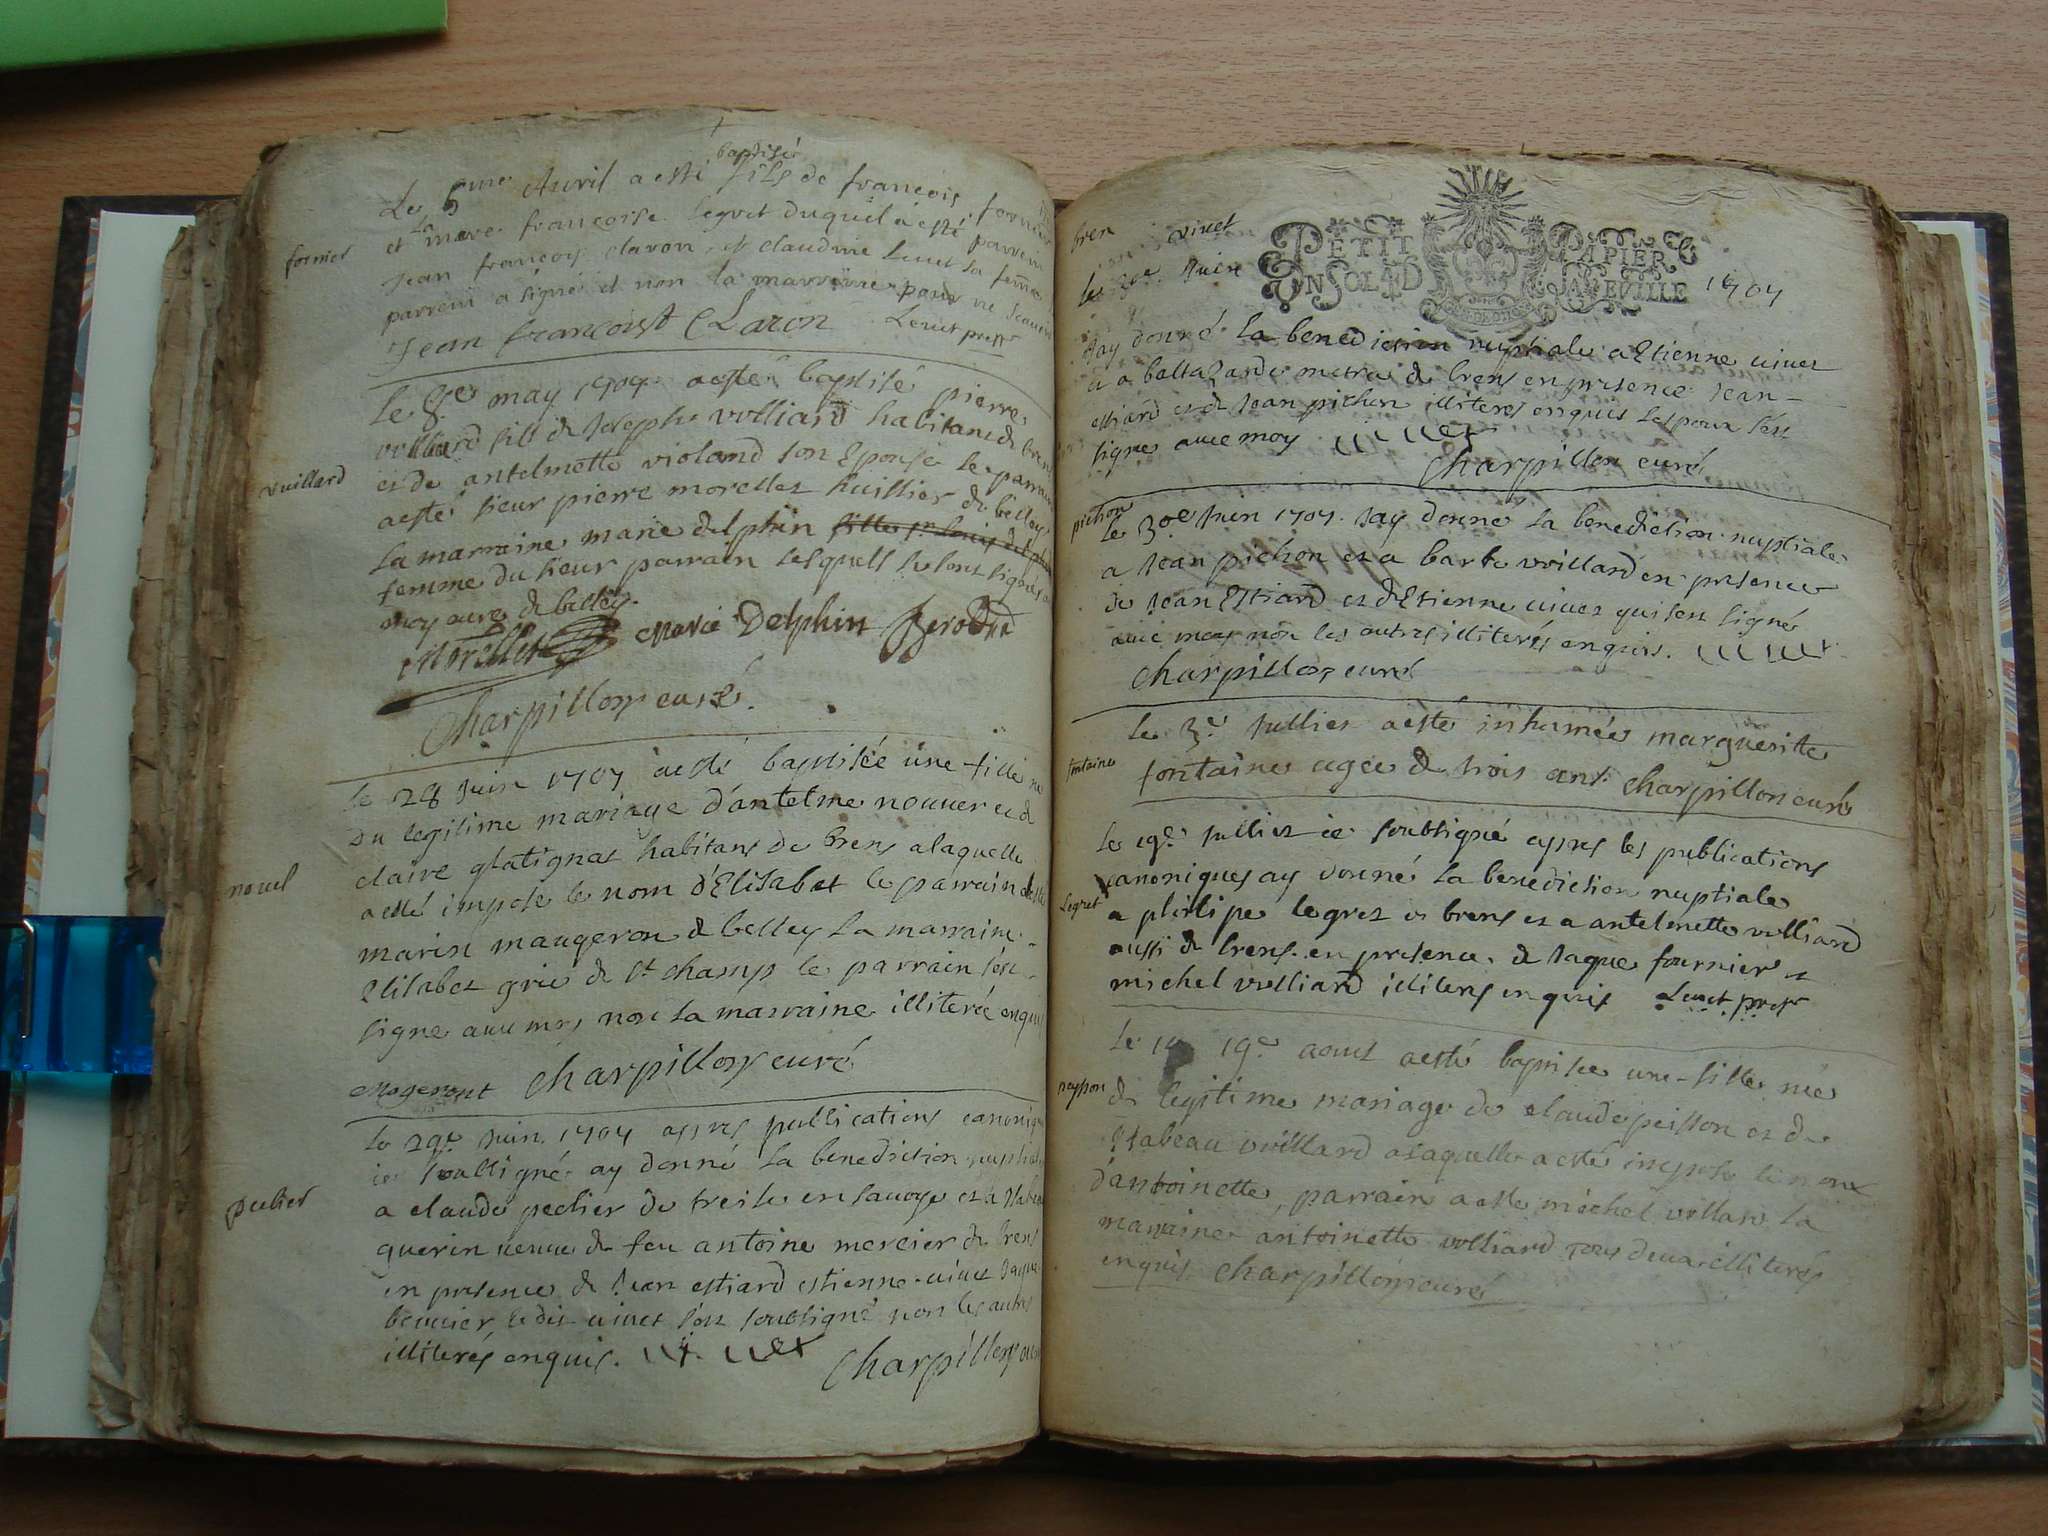 Le 5me Auril a esté baptisé fils de françois fornier
et la mere françoise Legret duquel a esté parrein
Jean françois claron et claudine Leuet sa femme
parrein a signé et non la marreine pour ne scauoir
Jean françoist Claron Leuet prestr
fornier
Le 8.e may 1707 a esté baptisé pierre
volliard fils de Joseph volliard habitant de brens
et de antelmette violand son Epouse le parrain
a esté sieur pierre morellet huillier de belley
La marraine marie delphin fille sr Louis delphin
femme du sieur parrain lesquells se sont signés
moy curé de belley.
vuillard
Morellet Marie Delphin
Charpillon curé.
Le 28 Juin 1707 a esté baptisée une fille née
Du legitime mariage d'antelme nouuer et d
claire glatignat habitans de brens a laquelle
a esté imposé le nom d'Elisabet le parrain a esté
marin maugeron de belley La marraine
Elisabet grie de St champ le parrain s'est
signe auec moy non La marraine illiterée enquis
nouel
Mogeront Charpillon curé
Le 29.e Juin 1707 apres publications canoniq
ie soubsigné ay donné La benediction nuptial
a claude peclier de treise en sauoye et a Isabeau
guerin veuue de feu antoine mercier de brens
en presence de Jean estiard estienne uiuet Jaque
bouuier, ledit uiuet s'est soubsigné non les autres
illiterés enquis. uiuet
Charpillon curé
peclier
bren
viuet
PETIT PAPIER
UN SOL LA FEUILLE
le 30e Juin 1707
Jay donné la benediction nuptiale a Etienne uiuet
et a baltazarde metra de brens en presence Jean
estiard et de Jean pichon illiterés enquis
signe auec moy uiuet
Charpillon curé
pichon
Le 30e Juin 1707. Jay donné La benediction nuptiale
a Jean pichon et a barbe voillard en presence
de Jean Estiard et d'Etienne uiuet qui s'en signé
auec moy non les autres illiterés enquis. uiuet
Charpillon curé
Le 3.e Juillet a esté inhumée marguerite
fontaine agée de trois ans. Charpillon curé
fontaine
Le 19.e Juillet ie soubsigné apres les publications
canoniques ay donné La benediction nuptiale
a philipe legret de brens et a antelmette volliard
aussi de brens. en presence de Jaque fournier et
michel volliard illiterés enquis Leuet prestr
Legret
Le 19.e aout a esté baptisée une fille née
du legitime mariage de claude peisson et de
Isabeau vuillard a laquelle a esté imposé le nom
d'antoinette, parrain a esté michel vollard la
marraine antoinette volliard tous deux illiterés
enquis Charpillon curé
peysson